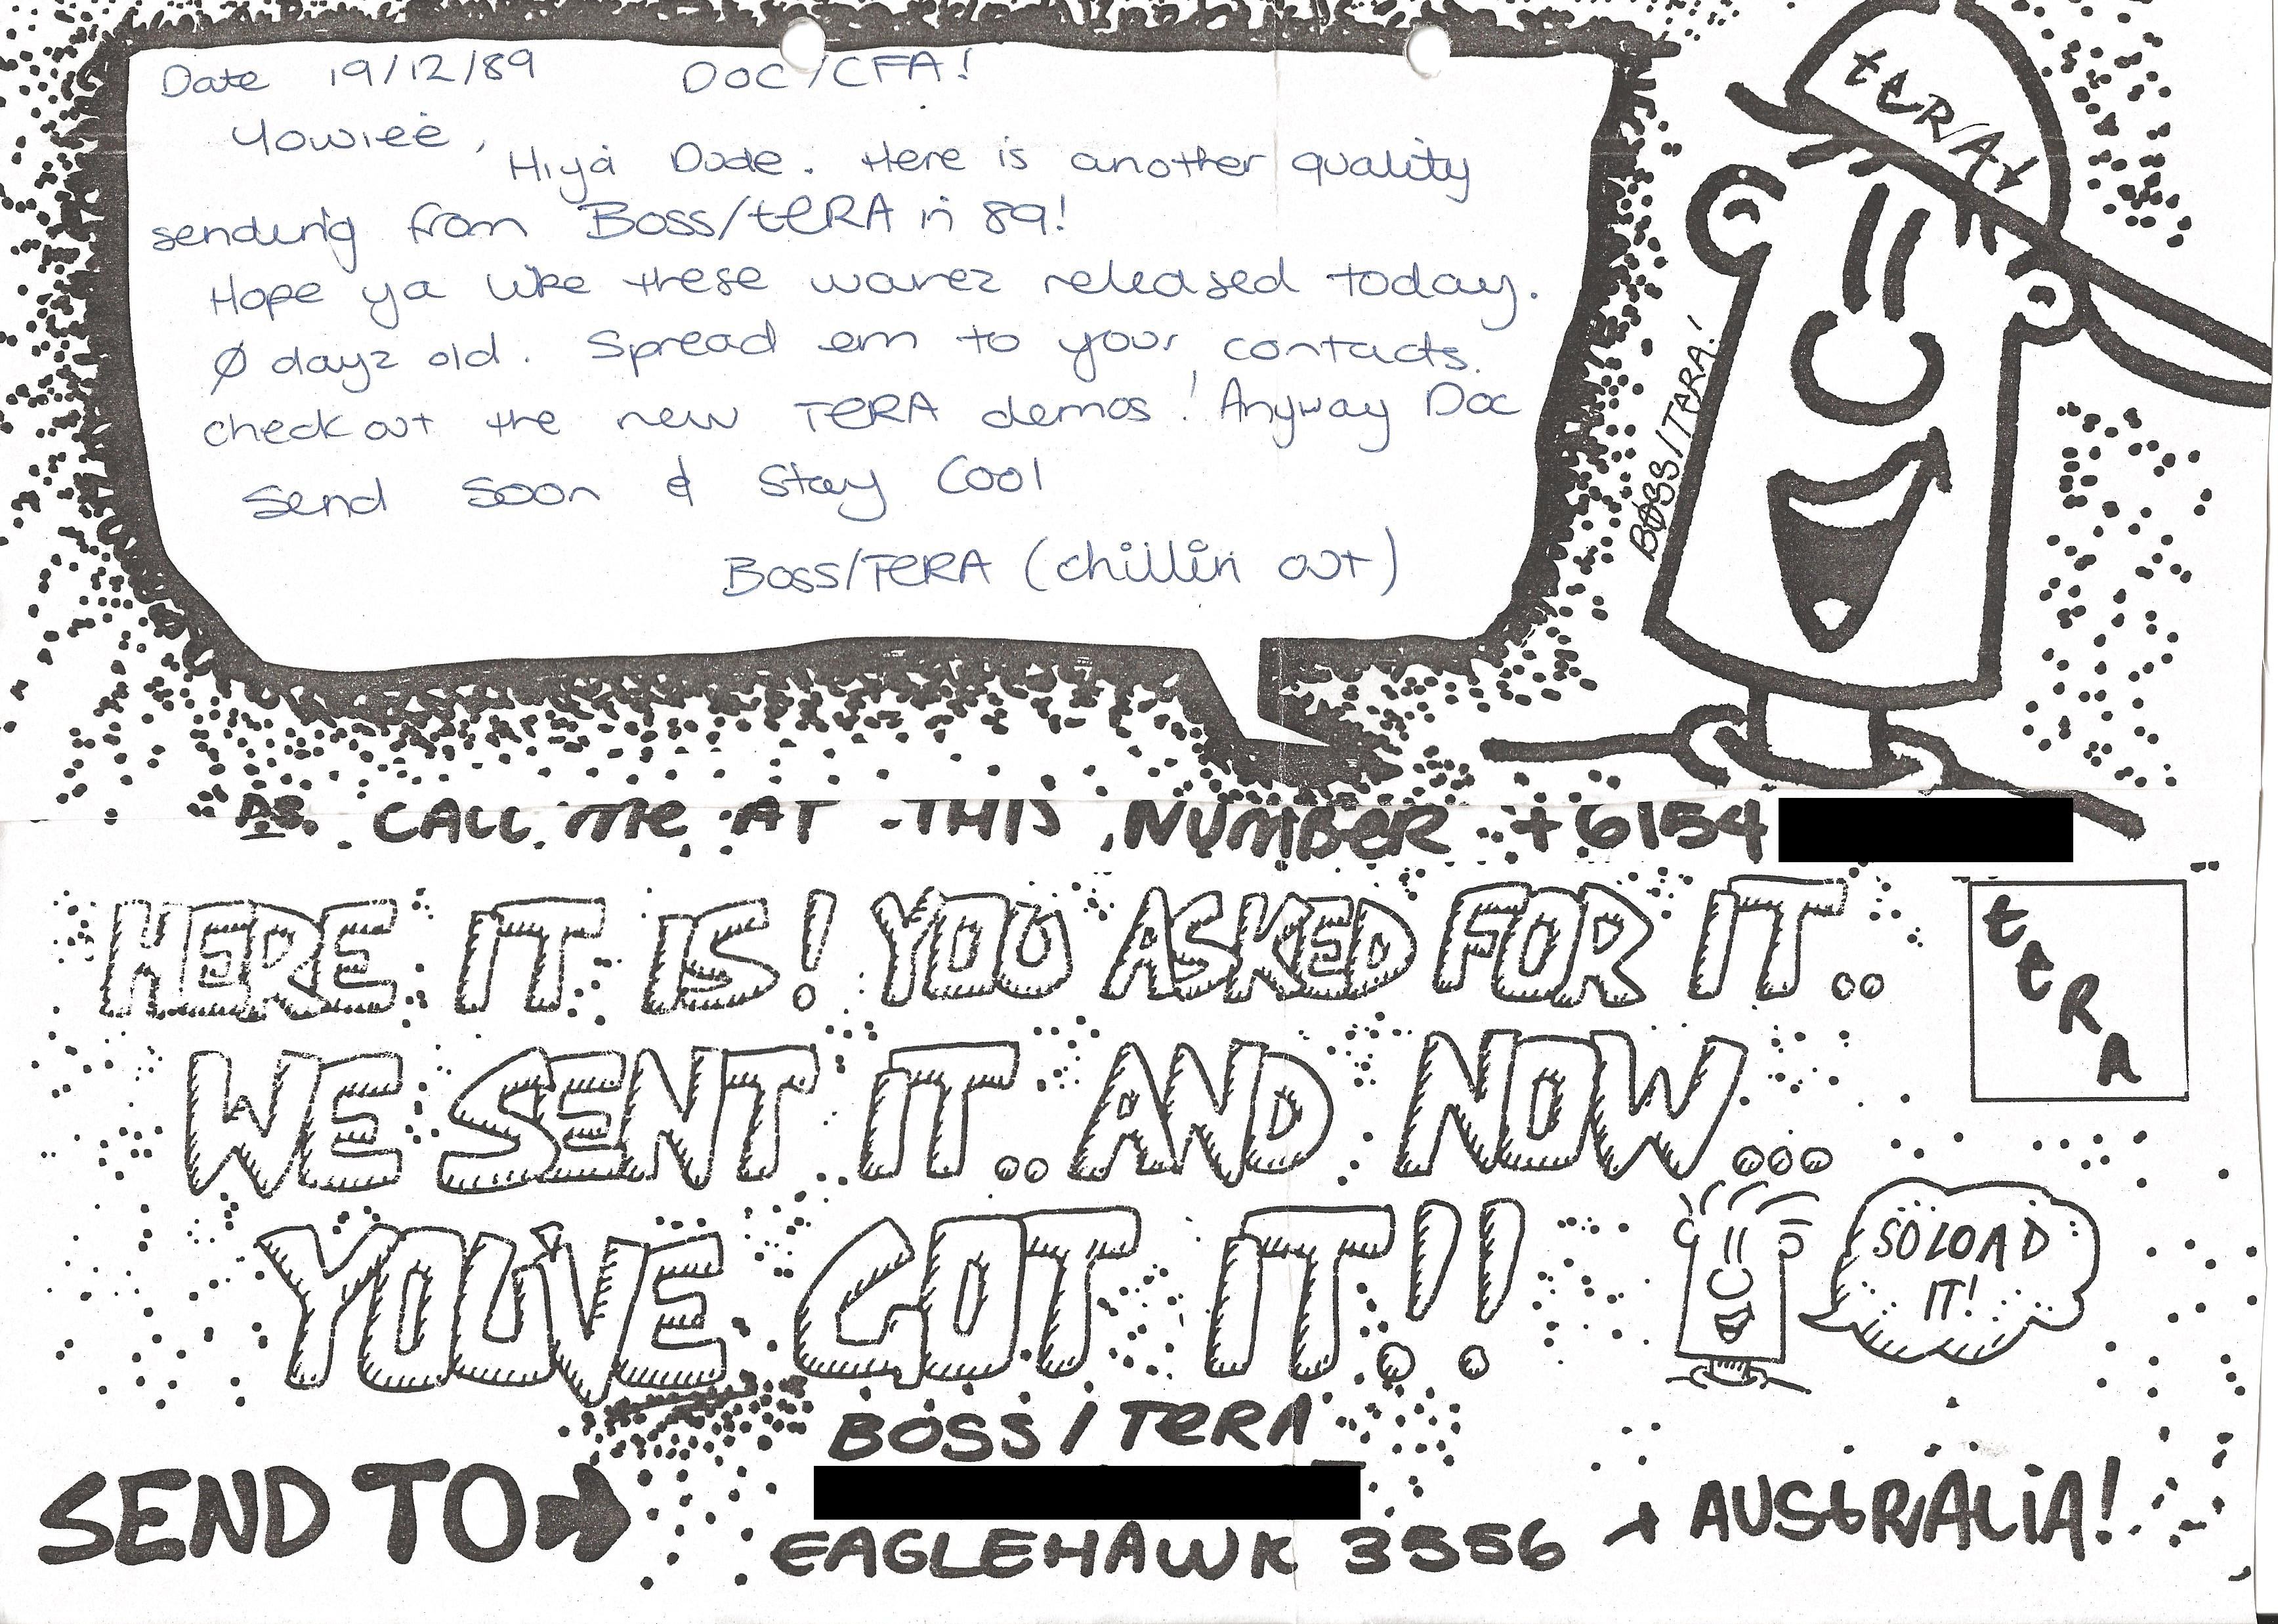 Date 19/12/89 DOC/CFA!
Yowiee,
Hiya Dude. Here is another quality
sending from Boss/teRA in 89!
Hope ya like these warez released today.
Ø dayz old. Spread em to your contacts.
check out the new TeRA demos! Anyway Doc
Send soon & Stay Cool
Boss/TeRA (chillin out)
teR/A!
BOSS/TARA!
PS. CALL me AT THIS NUMBeR +6154
HERE IT IS! YOU ASKED FOR IT..
WE SENT IT.. AND NOW...
YOU'VE GOT IT!!
teRA
SO LOAD
IT!
BOSS/TeRA
SEND TO
EAGLEHAWK 3556
AUStRALiA!